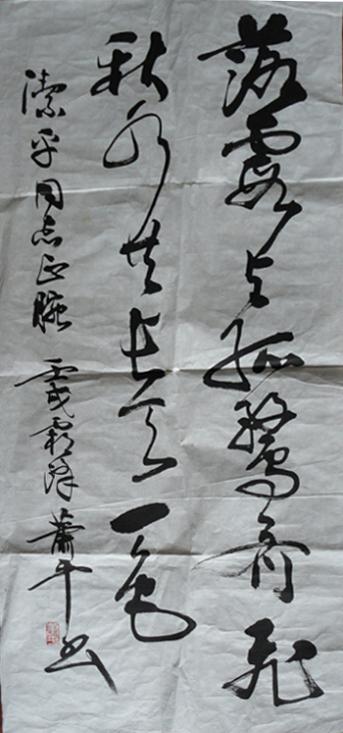 落霞与孤鹜齐飞
秋水共长天一色
潔平同志正腕 壬戌霜降 萧平书